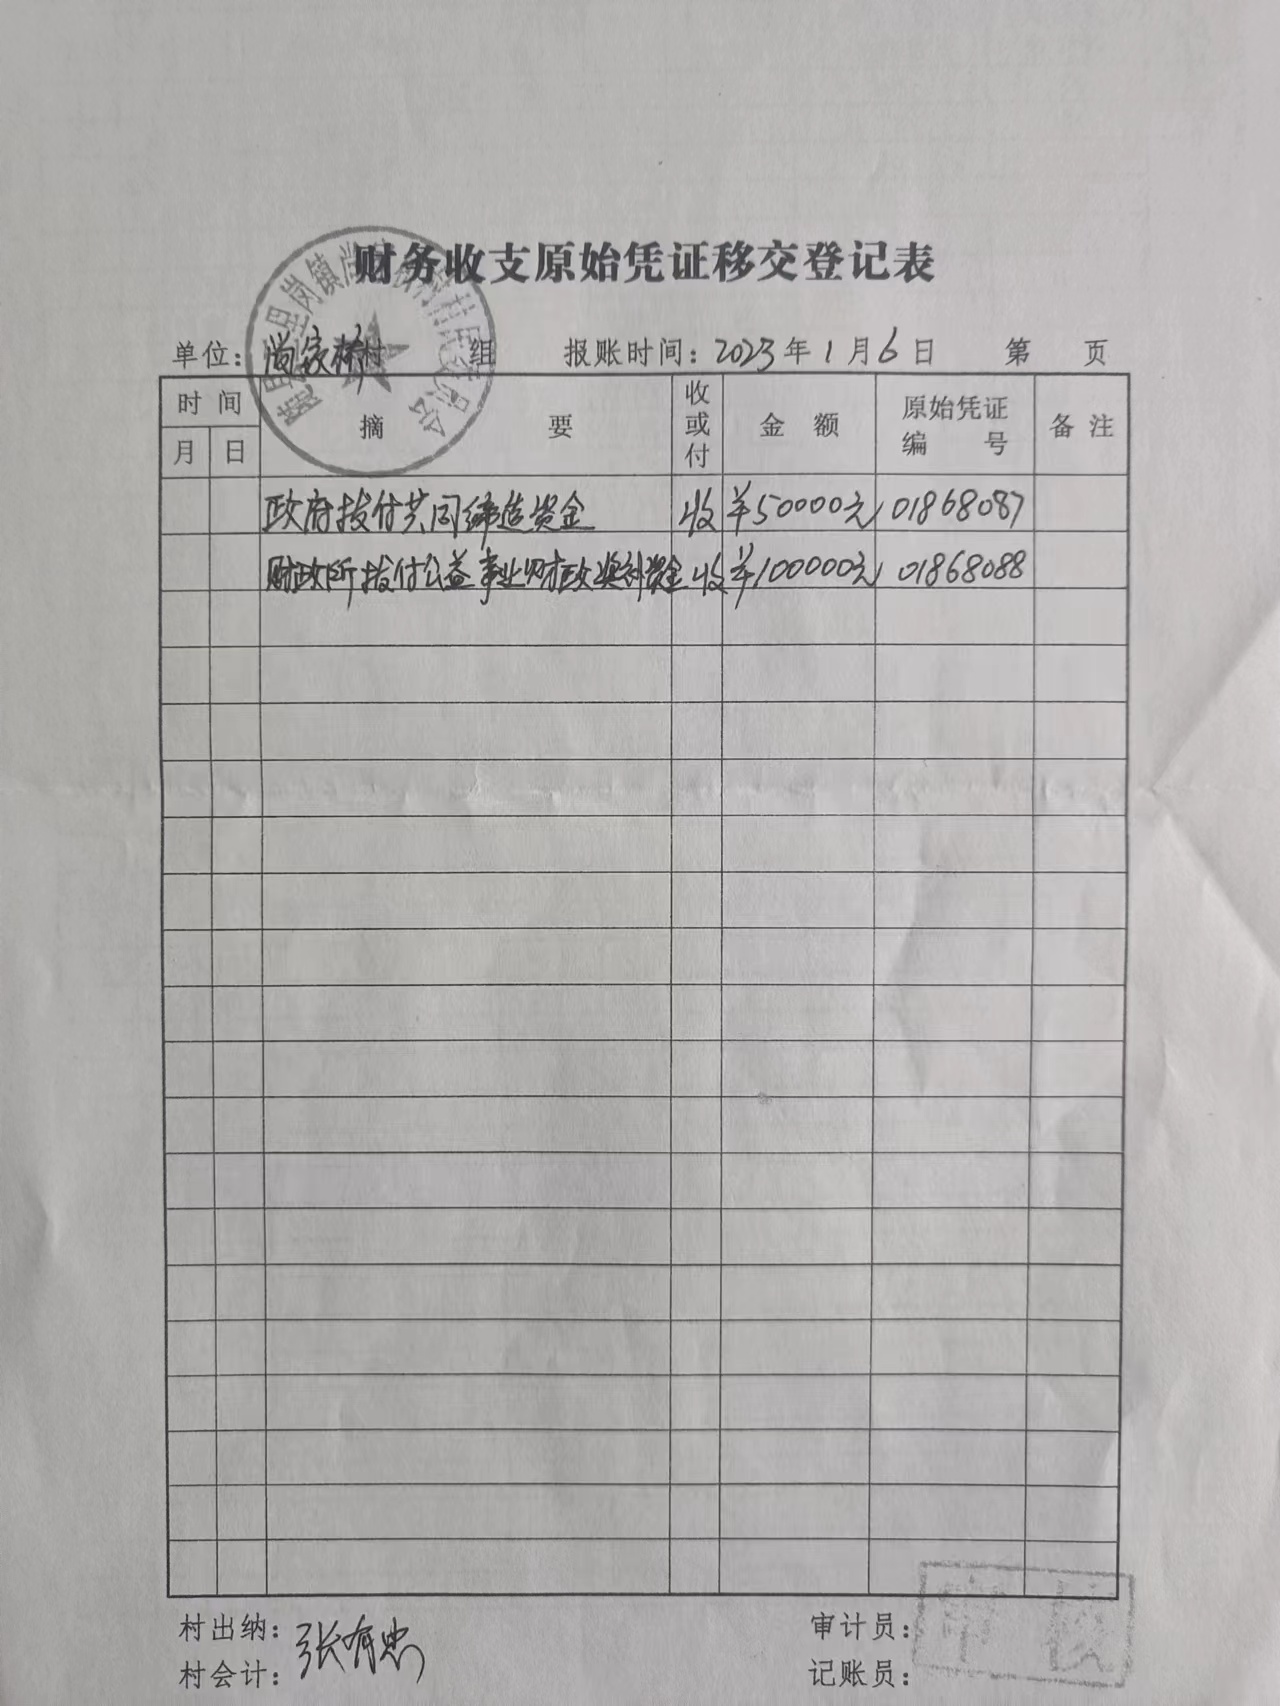 财务收支原始凭证移交登记表
单位：尚家桥村 组 报账时间：2023年1月6日 第 页
时间 摘要 收或付 金额 原始凭证编号 备注
月 日
政府拨付共同缔造资金 收 ¥50000元 01868087
财政所拨付公益事业财政奖补资金 收 ¥100000元 01868088
村出纳：张有忠 审计员：
村会计： 记账员：